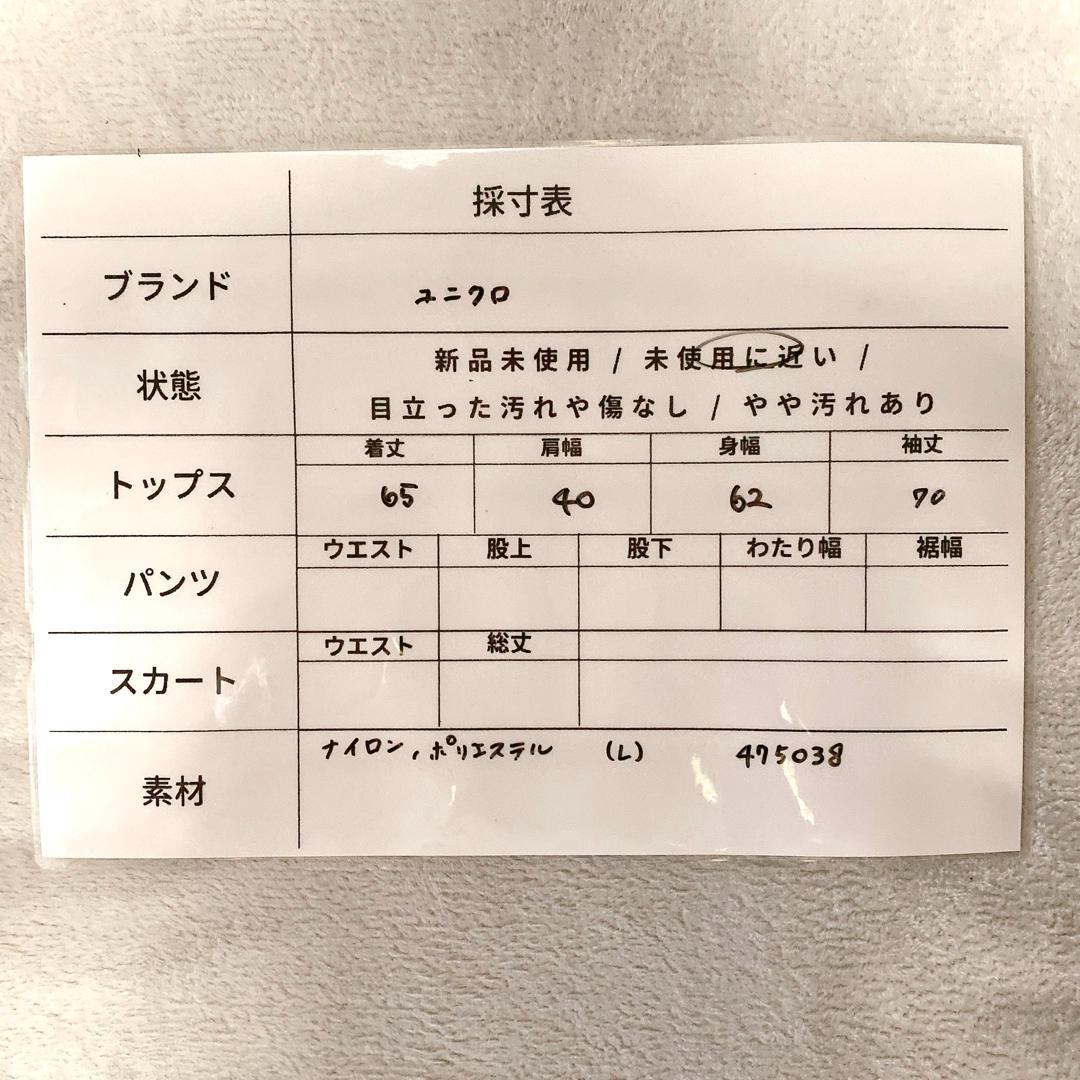 採寸表
ブランド ユニクロ
状態 新品未使用 / 未使用に近い /
目立った汚れや傷なし / やや汚れあり
着丈 肩幅 身幅 袖丈
トップス 65 40 62 70
ウエスト 股上 股下 わたり幅 裾幅
パンツ
ウエスト 総丈
スカート
素材 ナイロン,ポリエステル (L) 475038